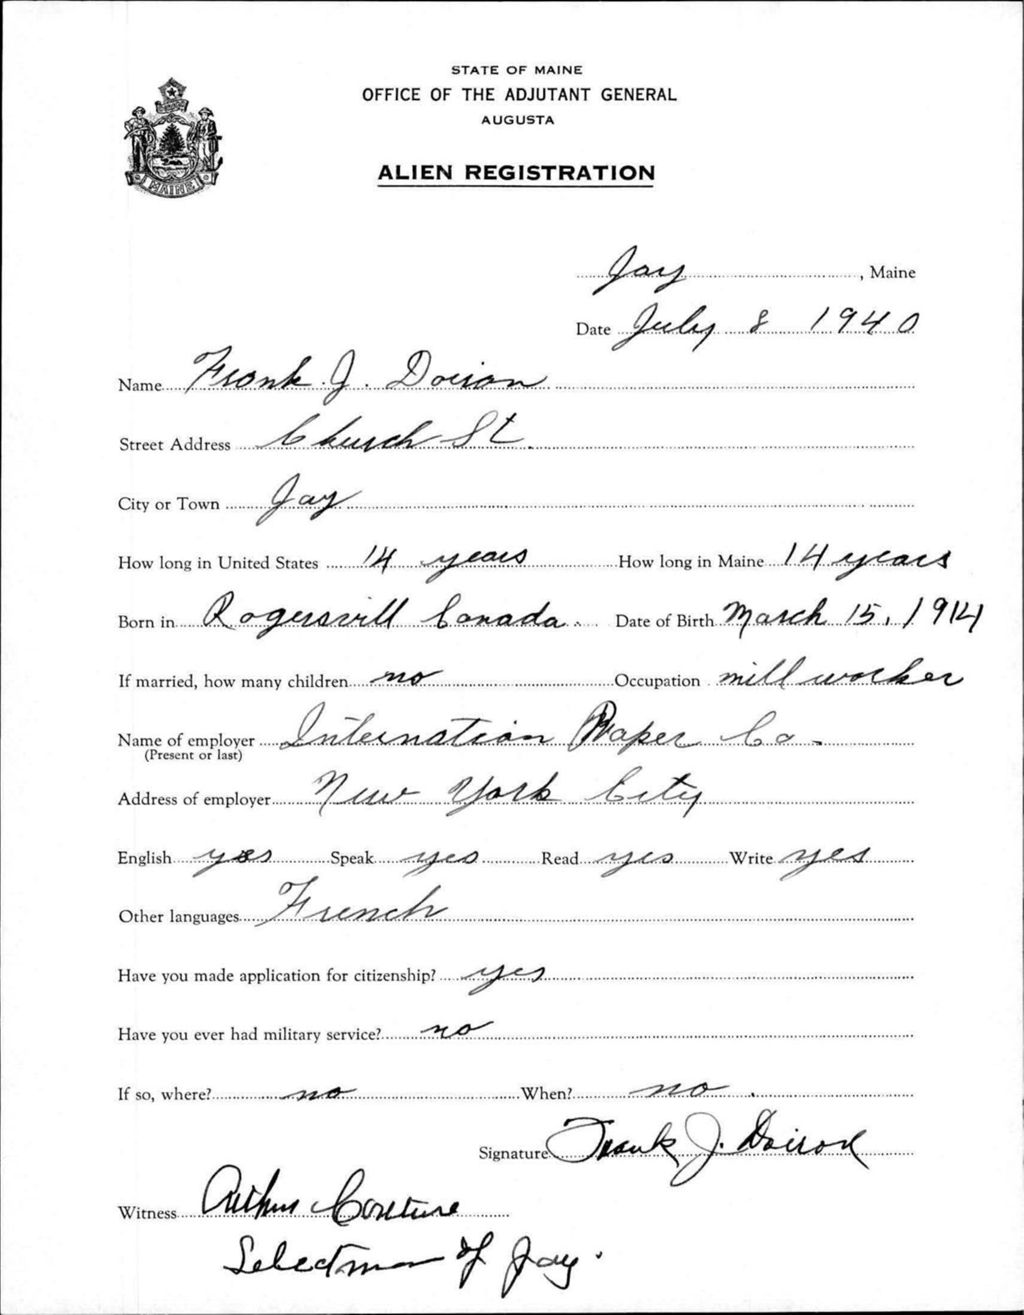 STATE OF MAINE
OFFICE OF THE ADJUTANT GENERAL
AUGUSTA
ALIEN REGISTRATION
MAINE
Jay, Maine
Date July 8 1940
Name Frank J. Doiron
Street Address Church St.
City or Town Jay
How long in United States 14 years How long in Maine 14 years
Born in Rogersvill Canada. Date of Birth March 15, 1914
If married, how many children no Occupation mill worker
Name of employer Internation Paper Co.
(Present or last)
Address of employer New York City
English yes Speak yes Read yes Write yes
Other languages French
Have you made application for citizenship? yes
Have you ever had military service? no
If so, where? no When? no
Signature Frank J. Doiron
Witness Arthur Couture
Selectman of Jay.